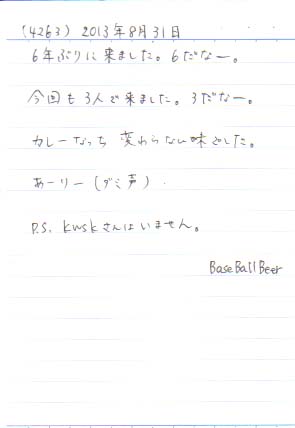 (4263) 2013年8月31日
6年ぶりに来ました。6だなー。
今回も3人で来ました。3だなー。
カレーなっち 変わらない味でした。
あーリー(ダミ声)
P.S. kwskさんはいません。
BaseBallBeer